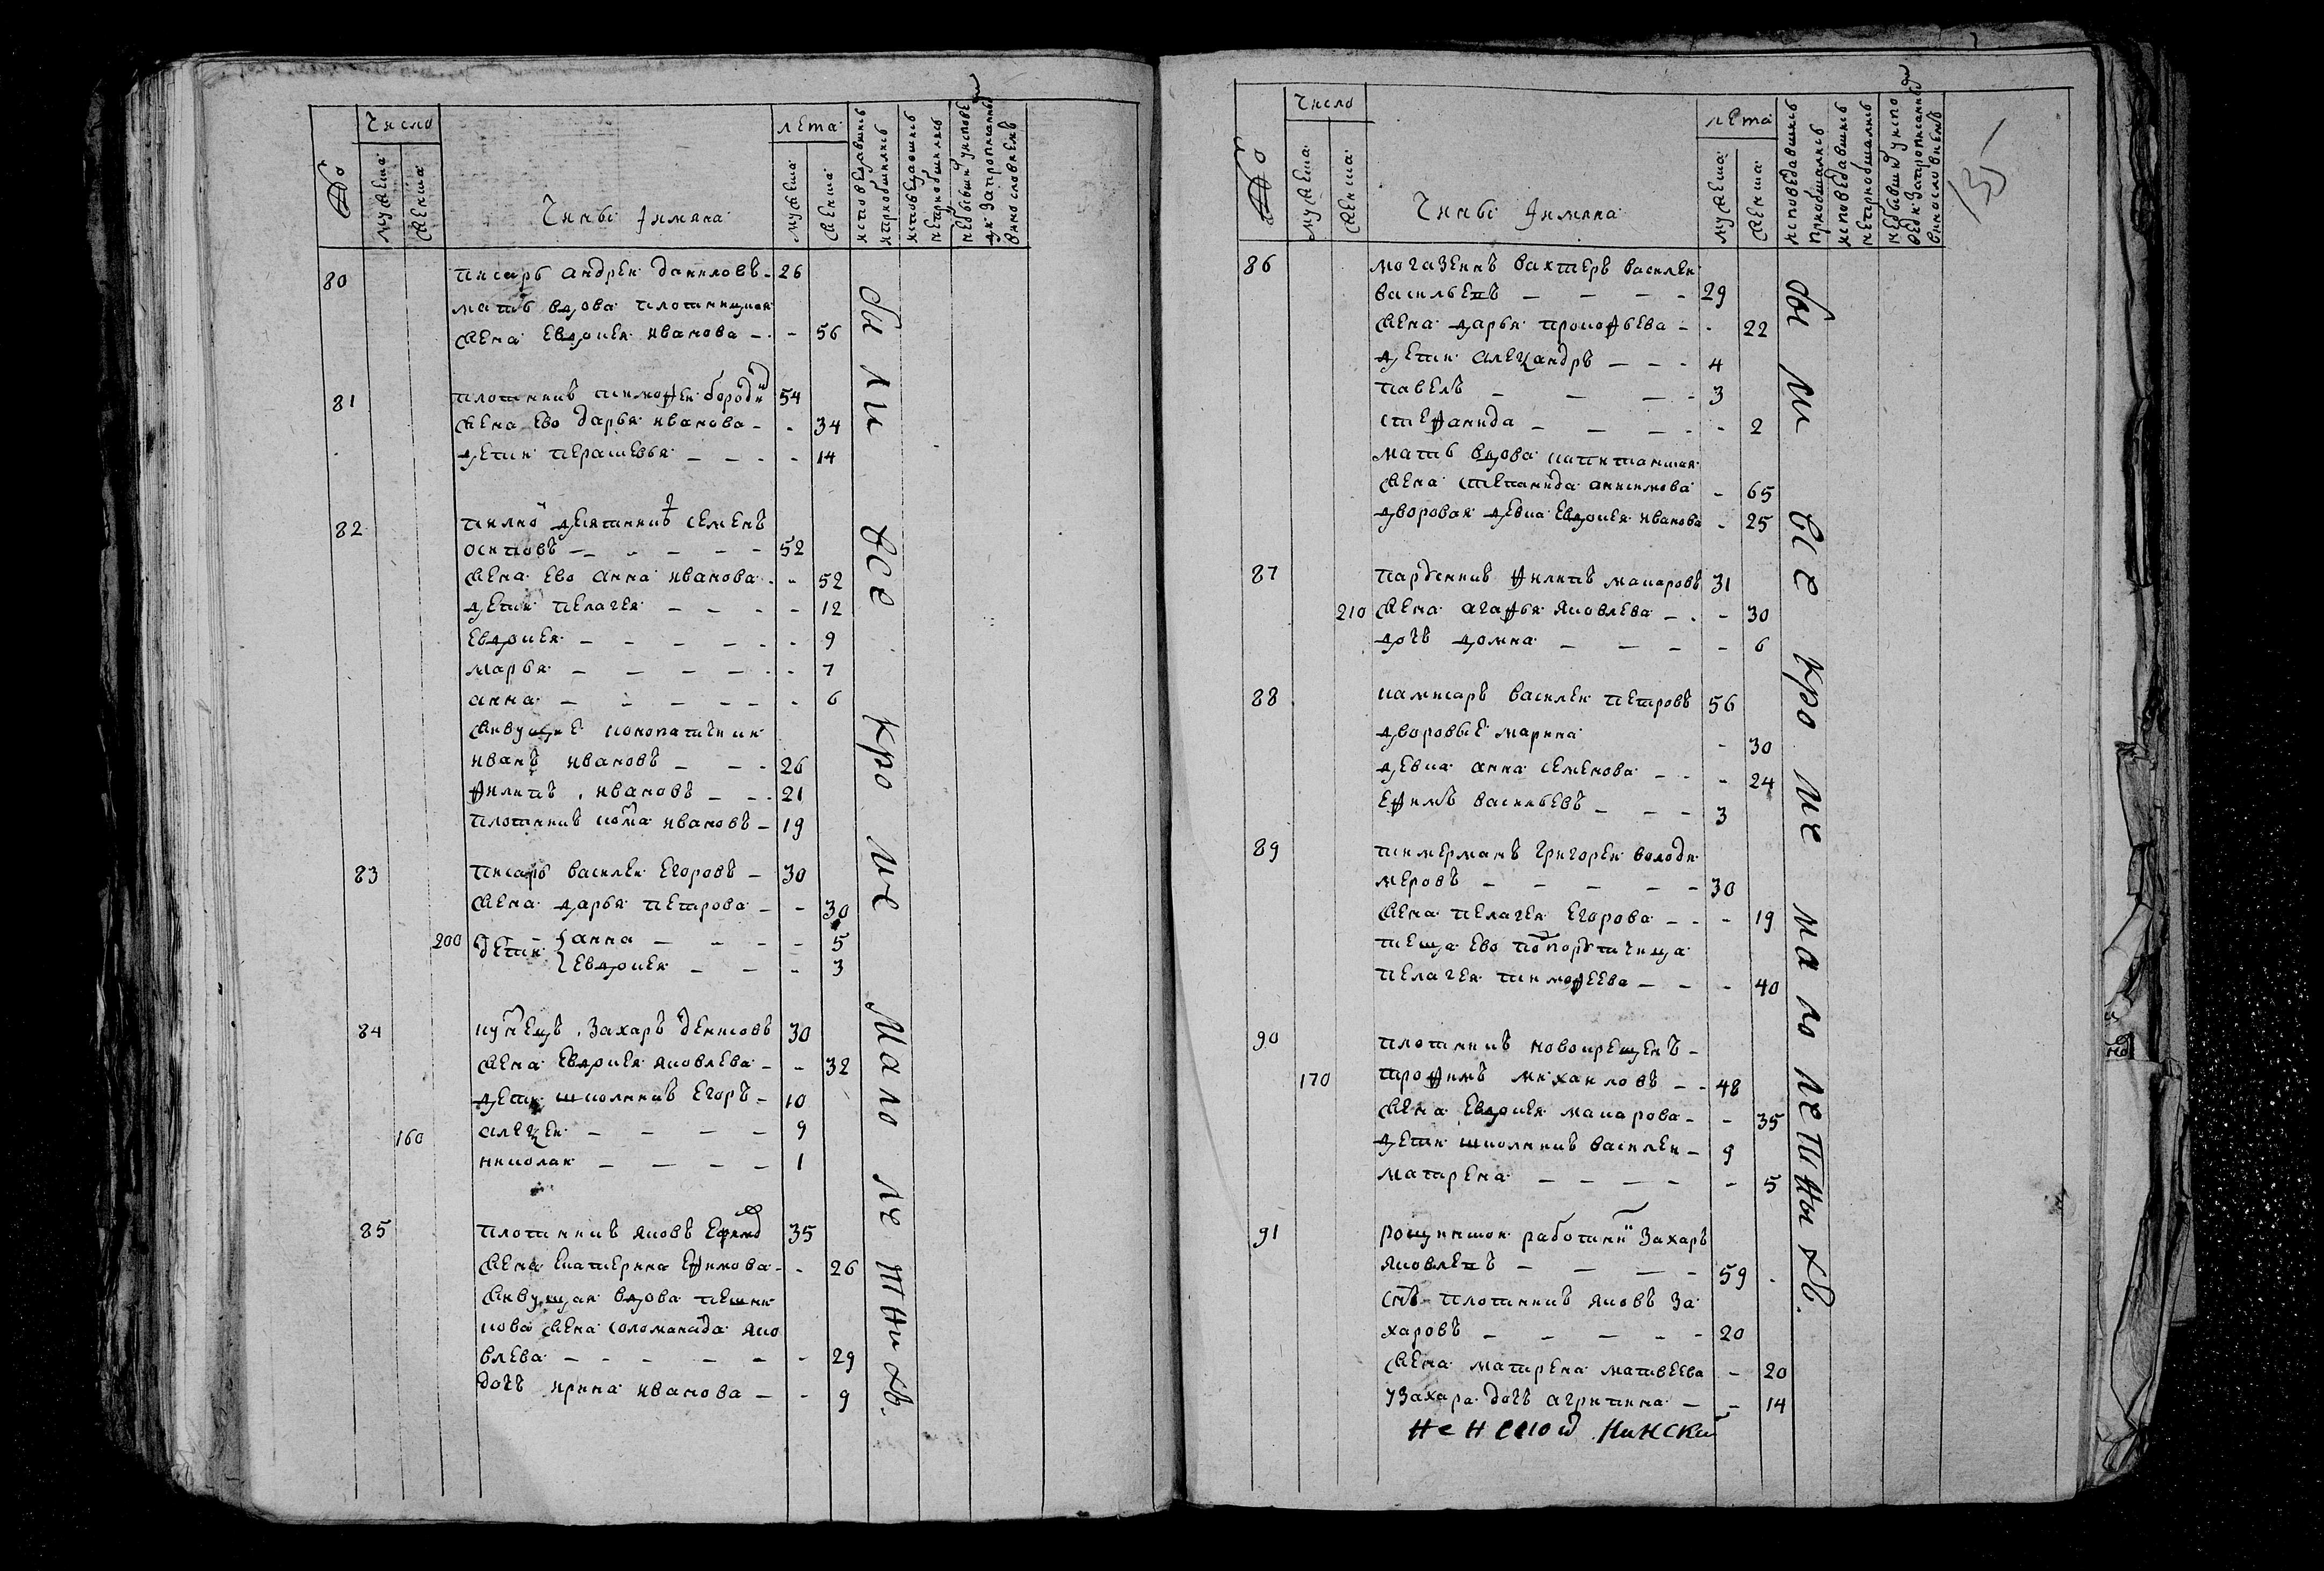 №
Число
мужеска
женска
Чины и имяна
лета
мужеска
женска
исповедавшиѣся
и приобшились
80 писарь андреи даниловъ - 26
мать вдова плотницкая
жена евдокея иванова - - 56
81 плотникъ тимофеи бороди 54
жена ево дарья иванова - - 34
дети перасковья - - - - 14
82 пилнои десятникъ семенъ
осиповъ - - - - - 52
жена ево анна иванова - - 52
дети пелагея - - - - 12
евдокея - - - - - - 9
марья - - - - - - 7
анна - - - - - - 6
живущие конопатчики
иванъ ивановъ - - - 26
филипъ ивановъ - - - 21
плотникъ козма ивановъ - 19
83 писарь василеи егоровъ - 30
жена дарья петрова - - 30
200 дети { анна - - - - 5
{ евдокея - - - 3
84 купецъ захаръ денисовъ 30
жена евдокея яковлева - - 32
дети школникъ егоръ - 10
160 алеѯеи - - - - 9
николаи - - - - 1
85 плотникъ яковъ ефимов 35
жена екатерина ефимова - - 26
живущая вдова пешни
кова жена соломанида яко
влева - - - - - - 29
дочь ирина иванова - - 9
были все кроме малолетныхъ.
№
Число
мужеска
женска
Чины и имяна
лета
мужеска
женска
исповедавшиѣся
приобшались
исповедавшиѣся
неприобшались
135
86 могазеинъ вахтеръ василеи
васильевъ - - - - 29
жена дарья прокофьева - - 22
дети алеѯандръ - - - 4
павелъ - - - - 3
стефанида - - - - - 2
мать вдова капитанская
жена степанида анисимова - 65
дворовая девка евдокея иванова - 25
87 парусникъ филипъ макаровъ 31
210 жена агафья яковлева - - - 30
дочь домна - - - - 6
88 камисаръ василеи петровъ 56
дворовые марина - 30
девка анна семенова - - - 24
ефимъ васильевъ - - - 3
89 тимерманъ григореи володи
меровъ - - - - - 30
жена пелагея егорова - - - 19
теща ево подпорутчица
пелагея тимофеева - - - 40
90 плотникъ новокрещенъ -
170 трофимъ михаиловъ - - 48
жена евдокея макарова - - 35
дети школникъ василеи - 9
матрена - - - - - 5
91 рощинскои работникъ захаръ
яковлевъ - - - - 59
снъ плотникъ яковъ за
харовъ - - - - - 20
жена матрена матвеева - 20
у захара дочь агрипина - - 14
были все кроме малолетныхъ.